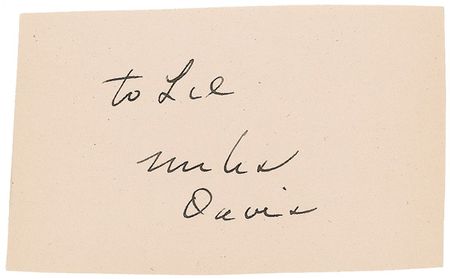 to Lee
Miles
Davis